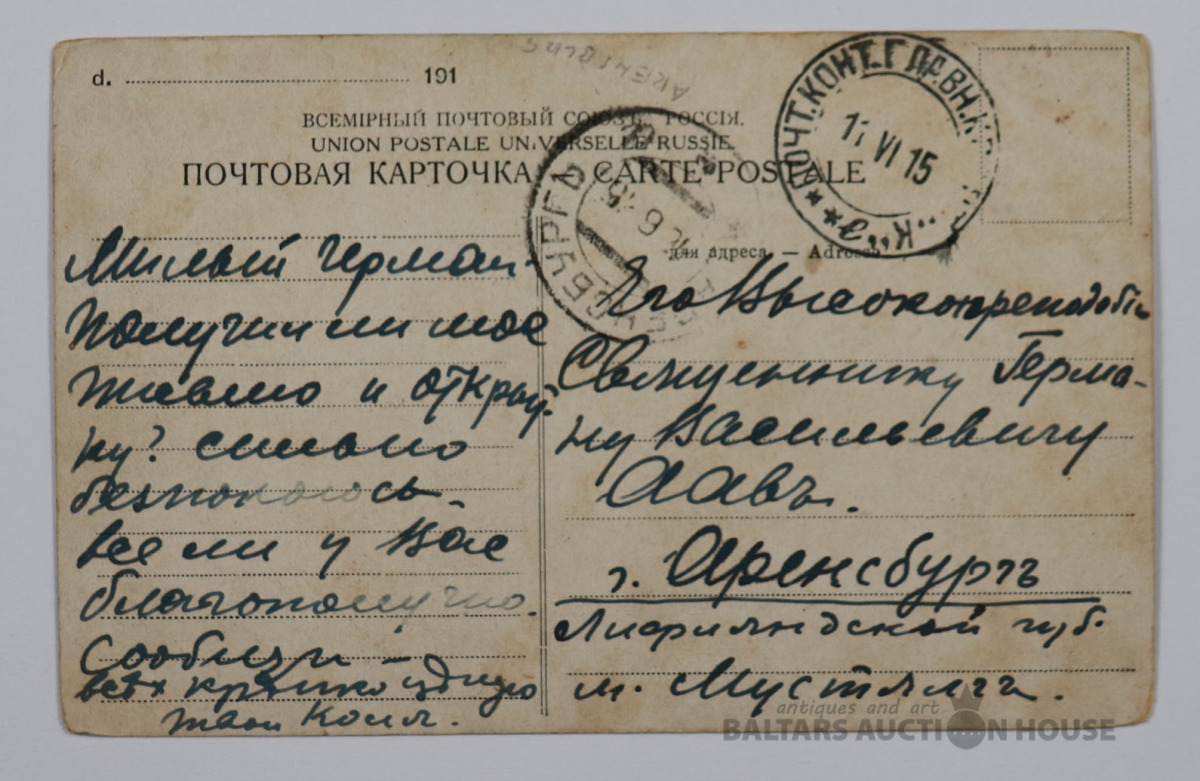 d. 191
ARENSBURG
ВСЕМІРНЫЙ ПОЧТОВЫЙ СОЮЗЪ. РОССІЯ.
UNION POSTALE UNIVERSELLE RUSSIE.
ПОЧТОВАЯ КАРТОЧКА — CARTE POSTALE
ПОЧТ.КОНТ.ГЛАВН.
11 VI 15
БУРГЪ
12 6 15
для адреса. — Adresse
Милый Герман.
Получил ли мое
письмо и открыт-
ку? сильно
безпокоюсь.
все ли у Вас
благополучно.
Сообщи —
всѣх крѣпко цѣлую
твой Коля.
Его Высокопреподобію
Священнику Герма-
ну Васильевичу
Аавъ.
г. Аренсбургъ
Лифляндской губ.
м. Мустяля.
antiques and art
BALTARS AUCTION HOUSE